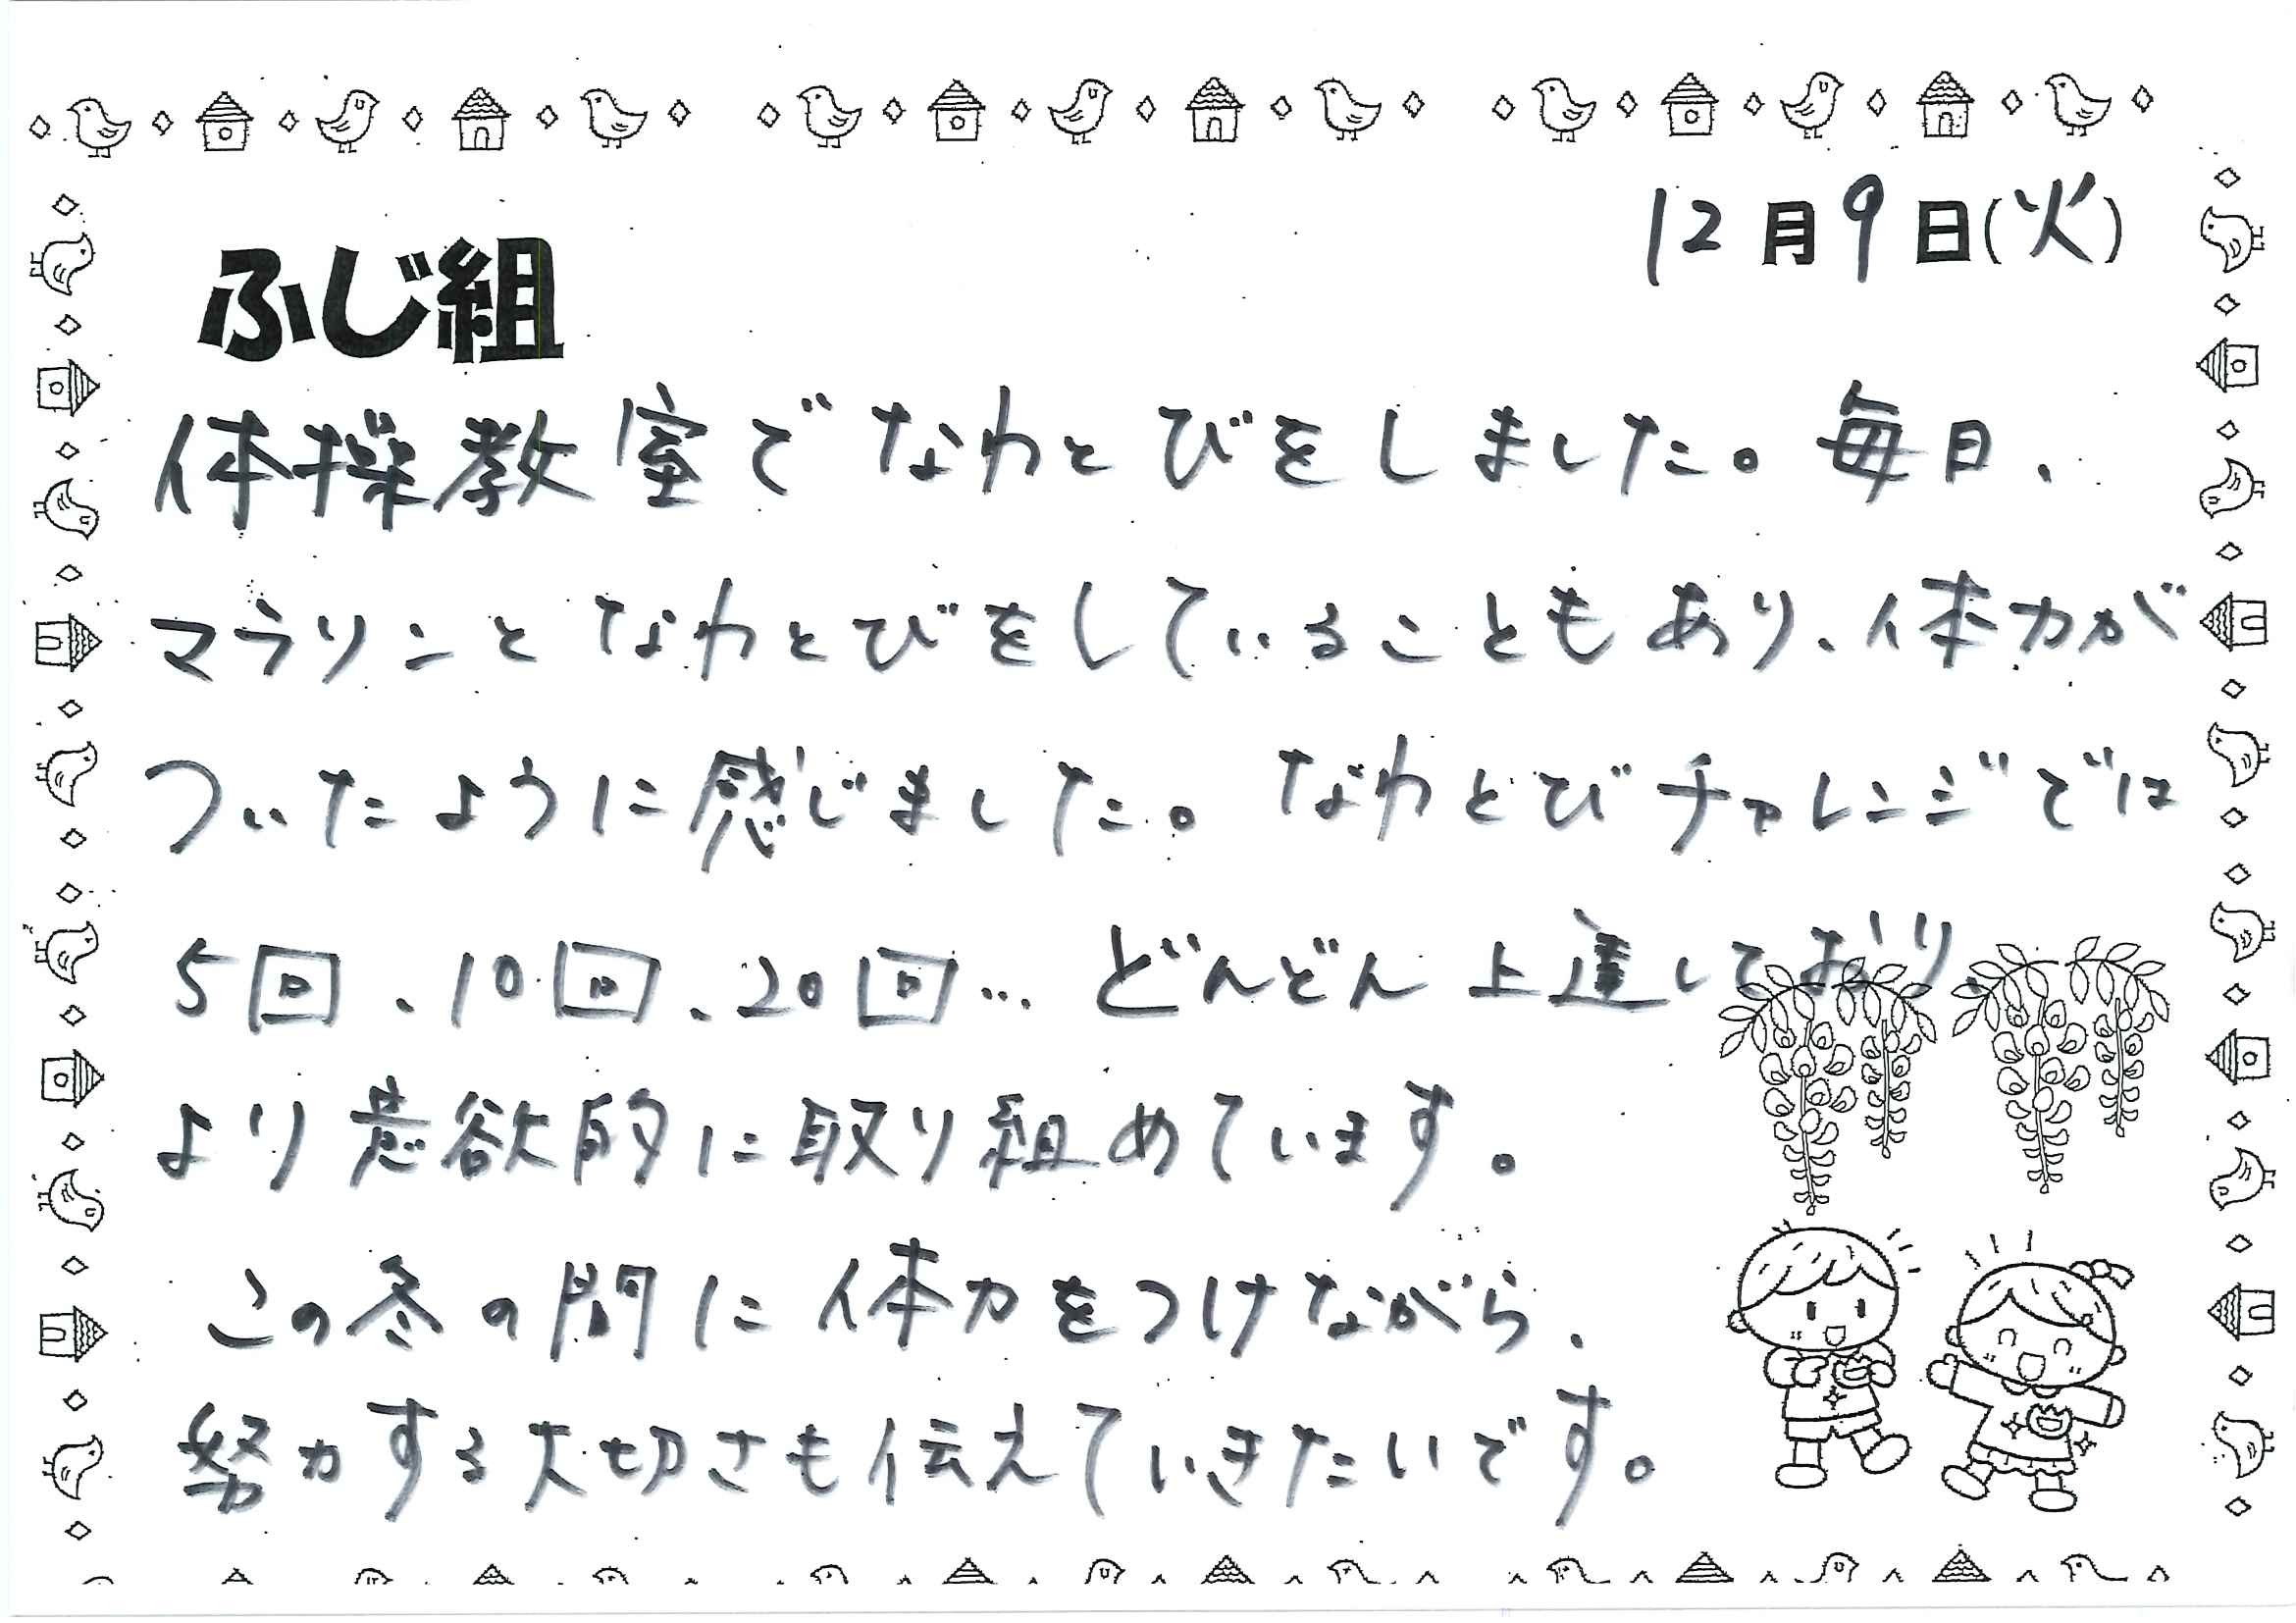 12月9日(火)
ふじ組
体操教室でなわとびをしました。毎日、
マラソンとなわとびをしていることもあり、体力が
ついたように感じました。なわとびチャレンジでは
5回、10回、20回…どんどん上達しており、
より意欲的に取り組めています。
この冬の間に体力をつけながら、
努力する大切さも伝えていきたいです。